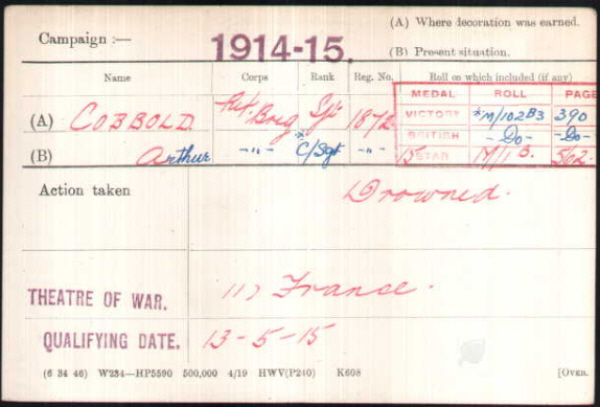 (A) Where decoration was earned.
Campaign :— 1914-15. (B) Present situation.
Name Corps Rank Reg. No. Roll on which included (if any)
MEDAL ROLL PAGE
(A) COBBOLD Rif. Brig Sjt 1872 VICTORY *M/102B3 390
BRITISH -Do- -Do-
(B) Arthur -"- *C/Sgt -"- 15 STAR M/1B. 562.
Action taken Drowned.
THEATRE OF WAR. (1) France.
QUALIFYING DATE. 13-5-15
(6 34 46) W234—HP5590 500,000 4/19 HWV(P240) K608 [OVER.